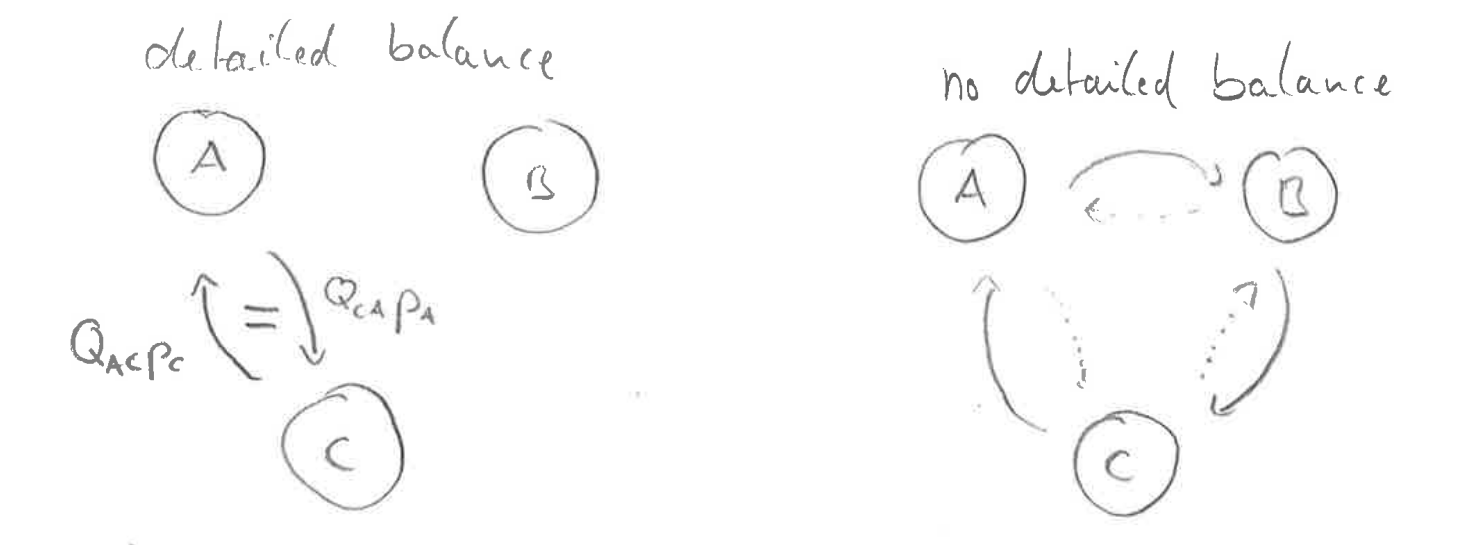 detailed balance
A
B
Q_AC p_C
=
Q_CA p_A
C
no detailed balance
A
B
C